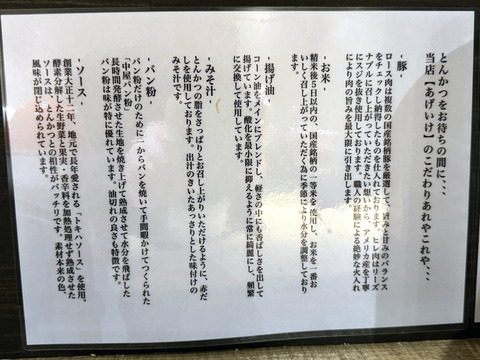 とんかつをお待ちの間に、、、
当店【あげいけ】のこだわりあれやこれや、、、
- 豚 -
ロース肉は複数の国産銘柄豚を厳選して、旨みと甘みのバランス
をチェックし納得したものを仕入れております。ヒレ肉はリーズ
ナブルに召し上がっていただきたい想いから、アメリカ産を丁寧
にスジを抜き使用しております。職人の経験による絶妙な火入れ
により肉の旨みを最大限に引き出します。
- お米 -
精米後5日以内の、国産銘柄の一等米を使用し、お米を一番お
いしく召し上がっていただく為に季節により水分を調整しており
ます。
- 揚げ油 -
コーン油をメインにブレンドし、軽さの中にも香ばしさを出して
揚げています。酸化を最小限に抑えるように常に綺麗にし、頻繁
に交換して使用しています。
- みそ汁 -
とんかつの脂をさっぱりとお召し上がりいただけるように、赤だ
しを使用しております。出汁のきいたあっさりとした味付けの
みそ汁です。
- パン粉 -
パン粉だけのために一からパンを焼いて手間暇かけてつくられた
「中屋パン粉」を使用。
長時間発酵させた生地を焼き上げて熟成させて水分を飛ばした
パン粉は味が特に優れています。油切れの良さも特徴です。
- ソース -
創業大正十二年、地元で長年愛される「トキハソース」を使用。
酵素分解した生野菜と果実・香辛料を加熱処理せず熟成させた
ソースは、とんかつとの相性がバッチリです。素材本来の色、
風味が閉じ込められています。